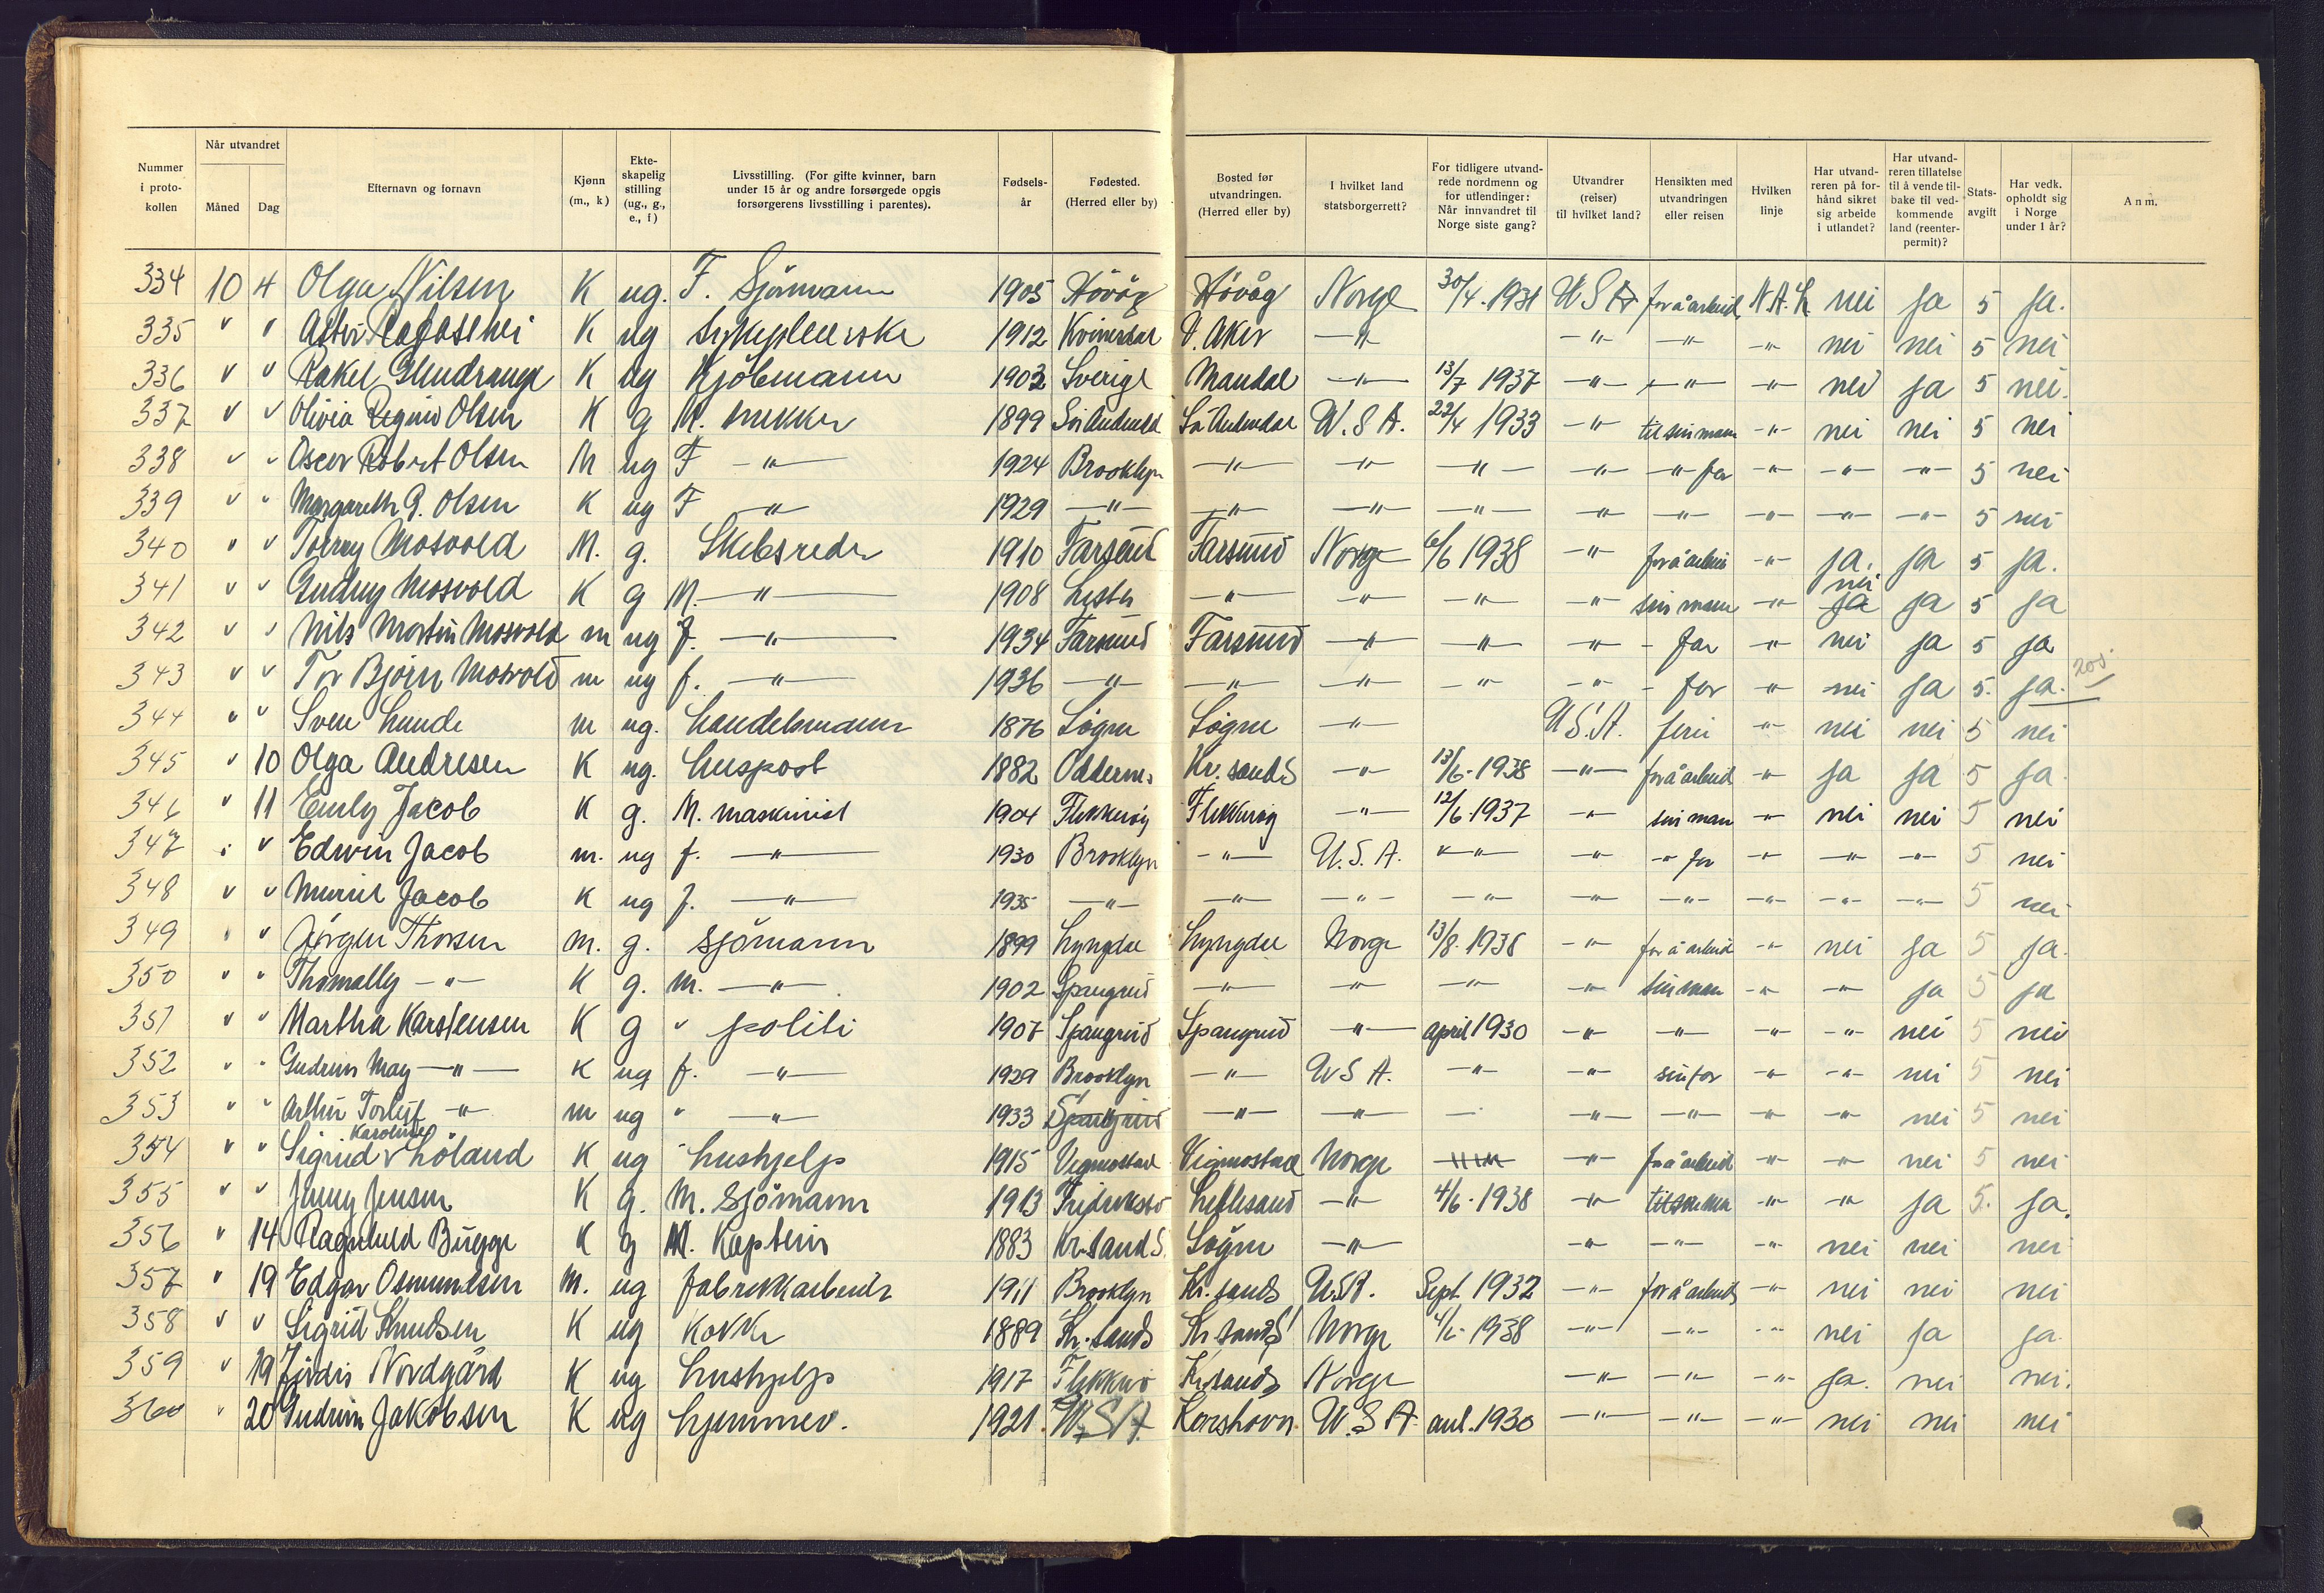 Nummer i proto- kollen | Når utvandret Måned Dag | Efternavn og fornavn | Kjønn (m., k) | Ekte- skapelig stilling (ug., g., e., f) | Livsstilling. (For gifte kvinner, barn under 15 år og andre forsørgede opgis forsørgerens livsstilling i parentes). | Fødsels- år | Fødested. (Herred eller by) | Bosted før utvandringen. (Herred eller by) | I hvilket land statsborgerrett? | For tidligere utvand- rede nordmenn og for utlendinger: Når innvandret til Norge siste gang? | Utvandrer (reiser) til hvilket land? | Hensikten med utvandringen eller reisen | Hvilken linje | Har utvand- reren på for- hånd sikret sig arbeide i utlandet? | Har utvand- reren tillatelse til å vende til- bake til ved- kommende land (reenter- permit)? | Stats- avgift | Har vedk. opholdt sig i Norge under 1 år? | Anm.
334 10 4 Olga Nilsen K ug. F. Sjömann 1905 Hövåg Hövåg Norge 30/4. 1931 U S A for å arbeid N.A.L nei ja 5 ja.
335 " " K ug sykepleierske 1912 Kvinesdal V. Aker -"- -"- -"- -"- nei nei 5 nei
336 " " Rakel K ug Kjöbmann 1903 Sverige Mandal -"- 13/7 1937 -"- -"- -"- nei ja 5 nei.
337 " " Olivia Regine Olsen K g M. snekker 1899 Sör Audnedal Sö Audnedal U.S A. 22/4 1933 -"- til sin mann -"- nei nei 5 nei
338 " " Oscar Robert Olsen M ug F -"- 1924 Brooklyn -"- -"- -"- -"- -"- far -"- -"- -"- 5 nei
339 " " Margareth G. Olsen K ug F -"- 1929 -"- -"- -"- -"- -"- -"- -"- -"- -"- 5 nei
340 " " Mosvold M. g. Skibsreder 1910 Farsund Farsund Norge 6/6 1938 -"- for å arbeid -"- ja. ja 5 ja.
341 " " Gudny Mosvold K g M. -"- 1908 Lista -"- -"- -"- -"- sin mann -"- nei ja ja 5 ja
342 " " Nils Martin Mosvold m ug f. -"- 1934 Farsund Farsund -"- -"- -"- - far -"- nei ja 5 ja
343 " " Tor Björn Mosvold m ug f. -"- 1936 -"- -"- -"- -"- -"- - far -"- nei ja 5. ja. 205.
344 " " Sven Lunde m ug. handelsmann 1876 Sögne Sögne -"- U.S.A. ferie -"- nei nei 5 nei
345 " 10 Olga Andresen K ug. huspost 1882 Oddernes Kr. sand S -"- 13/6. 1938 -"- for å arbeid -"- ja ja 5 ja.
346 " 11 Emly Jacob K g. M. maskinist 1904 Flekkeröy Flekkeröy -"- 12/6. 1937 -"- sin man -"- nei nei 5 nei
347 " " Edwin Jacob m. ug f. -"- 1930 Brooklyn -"- U.S.A. -"- -"- -"- far -"- -"- -"- 5 nei
348 " " Muriel Jacob K ug f. -"- 1935 -"- -"- -"- -"- -"- -"- -"- -"- -"- 5 nei
349 " " Jörgen Thorsen m. g. sjömann 1899 Lyngdal Lyngdal Norge 13/8. 1938 -"- for å arbeid -"- nei ja 5 ja.
350 " " Thomally -"- K g. m. -"- 1902 Spangreid -"- -"- -"- -"- sin man -"- -"- ja 5 ja
351 " " Martha Karstensen K g " politi 1907 Spangreid Spangreid -"- april 1930 -"- -"- -"- -"- nei 5 nei
352 " " Gudrun May -"- K ug f. -"- 1929 Brooklyn -"- U S A. -"- -"- sin far -"- -"- nei 5 nei
353 " " Arthur Torleif -"- m ug " -"- 1933 Spangreid -"- -"- - -"- -"- -"- -"- nei 5 nei
354 " " Sigrid Karoline Löland K ug hushjelp 1915 Vigmostad Vigmostad Norge -"- for å arbeid -"- -"- nei 5 nei
355 " " Jenny Jensen K g. M. Sjömann 1913 Fredrikstad Lillesand -"- 4/6. 1938 -"- til sin man -"- -"- ja 5. ja.
356 " 14 Ragnhild Bugge K g M. Kaptein 1883 Kr. sand S. Sögne -"- -"- -"- -"- nei nei nei
357 " 19 Edgar Osmundsen M. ug fabrikkarbeider 1911 Brooklyn Kr. sand S U.S.A. Sept. 1932 -"- for å arbeid -"- nei nei nei
358 " " Sigrid Knudsen K ug Kokke 1889 Kr. sand S Kr. sand S Norge 4/6. 1938 -"- -"- -"- nei ja ja.
359 " 19 Nordgård K ug hushjelp 1917 Flekkerö Kr.sand S Norge -"- -"- -"- ja. nei nei.
360 " 20 Gudrun Jakobsen K ug hjemmev. 1921 U.S.A. Korshavn U.S A aul. 1930 -"- -"- -"- nei nei nei